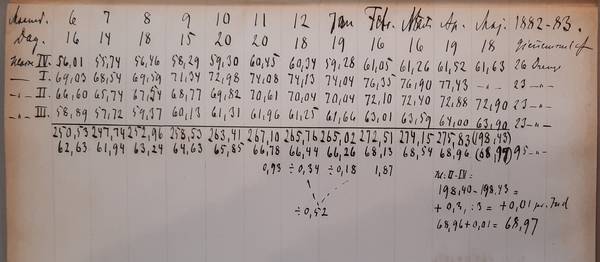 Maaned. 6 7 8 9 10 11 12 Jan Febr. Marts Ap. Maj. 1882-83.
Dag. 16 14 18 15 20 20 18 19 16 16 19 18
Klasse IV. 56,01 55,74 56,46 58,29 59,30 60,45 60,34 59,28 61,05 61,26 61,52 61,63 26 Drenge
-„- I. 69,03 68,54 69,59 71,34 72,98 74,08 74,13 74,04 76,35 76,90 77,43 -„- 23 -„-
-„- II. 66,60 65,74 67,54 68,77 69,82 70,61 70,04 70,04 72,10 72,40 72,88 72,90 23 -„-
-„- III. 58,89 57,72 59,37 60,13 61,31 61,96 61,25 61,66 63,01 63,59 64,00 63,90 23 -„-
250,53 247,74 252,96 258,53 263,41 267,10 265,76 265,02 272,51 274,15 275,83 (198,43)
62,63 61,94 63,24 64,63 65,85 66,78 66,44 66,26 68,13 68,54 68,96 (68,97) 95 -„-
0,93 ÷0,34 ÷0,18 1,87
÷0,52
N: II-IV:
198,40 - 198,43 =
+ 0,3, :3 = + 0,01 pr. Ind
68,96 + 0,01 = 68,97